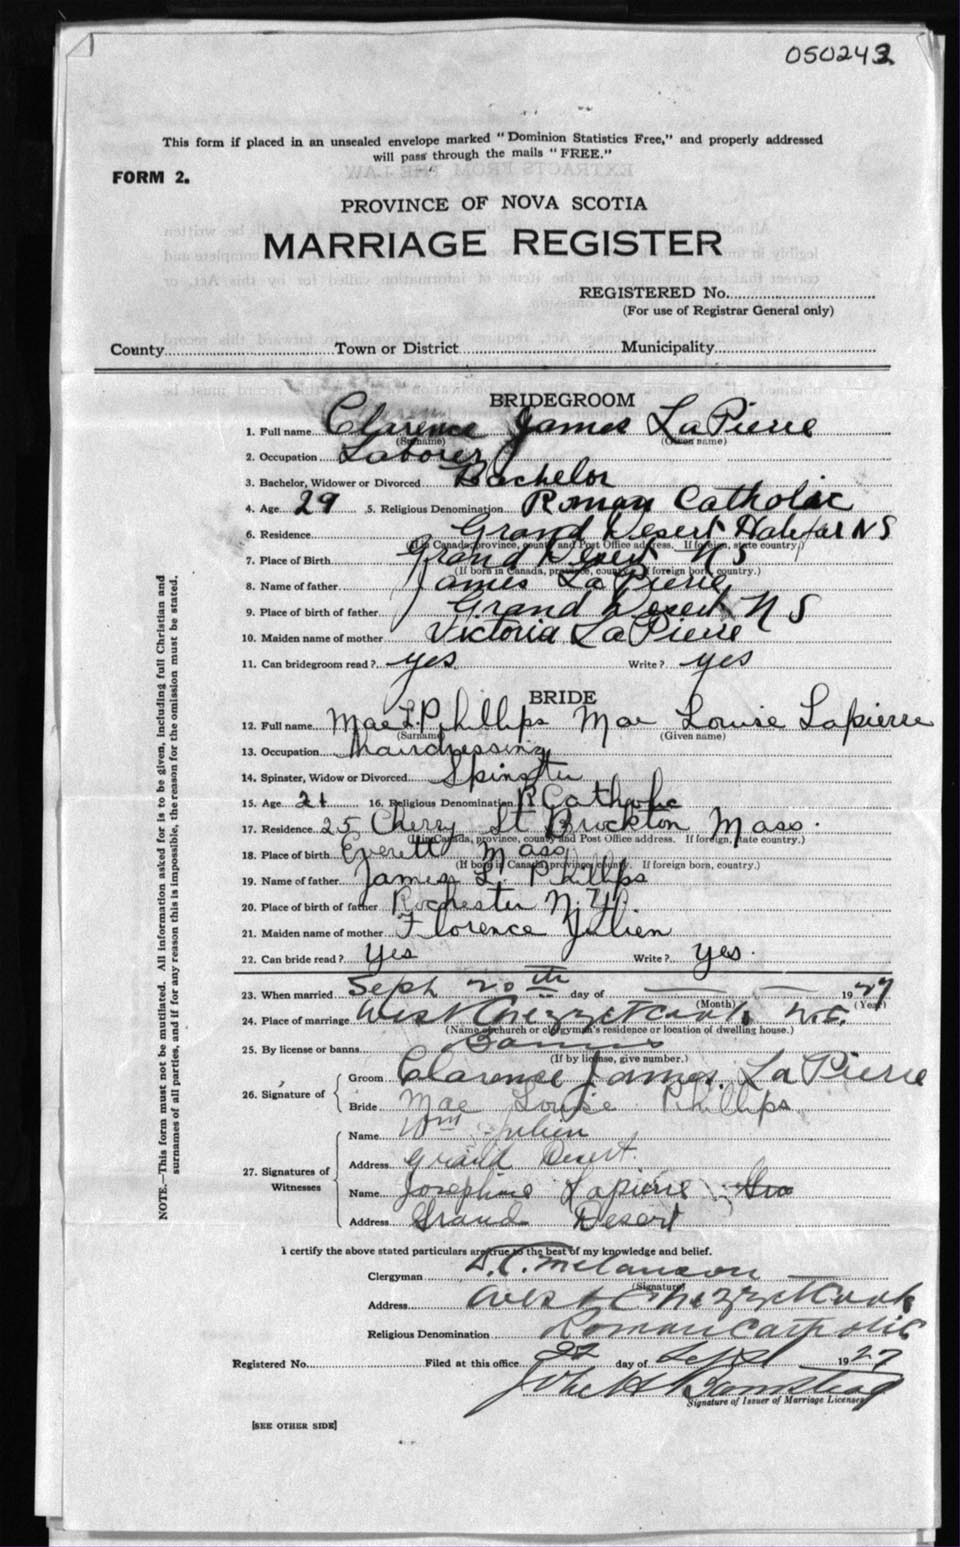 050243
This form if placed in an unsealed envelope marked "Dominion Statistics Free," and properly addressed
will pass through the mails "FREE."
FORM 2.
PROVINCE OF NOVA SCOTIA
MARRIAGE REGISTER
REGISTERED No.
(For use of Registrar General only)
County Town or District Municipality
BRIDEGROOM
1. Full name Clarence James LaPierre
(Surname) (Given name)
2. Occupation Laborer
3. Bachelor, Widower or Divorced Bachelor
4. Age 29 5. Religious Denomination Roman Catholic
6. Residence Grand Desert Halifax N S
(If in Canada, province, county and Post Office address. If foreign, state country)
7. Place of Birth Grand Desert N S
(If born in Canada, province, county. If foreign born, country.)
8. Name of father James LaPierre
9. Place of birth of father Grand Desert N S
10. Maiden name of mother Victoria LaPierre
11. Can bridegroom read? yes Write? yes
BRIDE
12. Full name Mae L. Phillips Mae Louise Lapierre
(Surname) (Given name)
13. Occupation Hairdressing
14. Spinster, Widow or Divorced Spinster
15. Age 21 16. Religious Denomination R Catholic
17. Residence 25 Cherry St Brockton Mass.
(If in Canada, province, county and Post Office address. If foreign, state country.)
18. Place of birth Everett Mass
(If born in Canada, province, county. If foreign born, country.)
19. Name of father James L. Phillips
20. Place of birth of father Rochester N.Y.
21. Maiden name of mother Florence Julien
22. Can bride read? Yes Write? yes.
23. When married Sept 20th day of 1927
(Month) (Year)
24. Place of marriage West Chezzetcook N.S.
(Name of church or clergyman's residence or location of dwelling house.)
25. By license or banns Banns
(If by license, give number.)
26. Signature of
Groom Clarence James LaPierre
Bride Mae Louise Phillips
27. Signatures of Witnesses
Name Wm Julien
Address Grand Desert
Name Josephine Lapierre
Address Grand Desert
I certify the above stated particulars are true to the best of my knowledge and belief.
Clergyman Melanson
(Signature)
Address West Chezzetcook
Religious Denomination Roman Catholic
Registered No. Filed at this office 22 day of Sept 1927
Signature of Issuer of Marriage Licenses
[SEE OTHER SIDE]
NOTE.—This form must not be mutilated. All information asked for is to be given, including full Christian and
surnames of all parties, and if for any reason this is impossible, the reason for the omission must be stated.